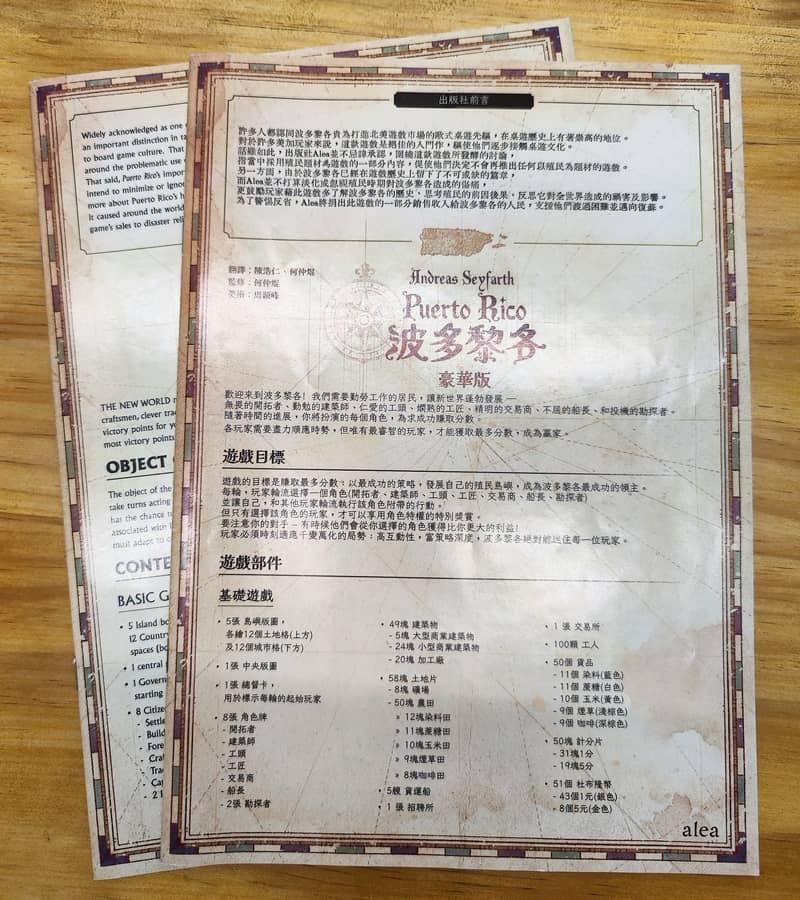 Widely acknowledged as one
an important distinction in
to board game culture. That
around the problematic use
That said, Puerto Rico's
intend to minimize or ignore
more about Puerto Rico's
it caused around the world
game's sales to disaster
THE NEW WORLD
craftsmen, clever
victory points for
most victory points
OBJECT
The object of the
take turns acting
has the chance
associated with
must adapt to
CONTE
BASIC G
• 5 Island
12
spaces
• 1 central
• 1
starting
• 8
-
-
-
-
-
-
- 2
出版社前言
許多人都認同波多黎各貴為打造北美遊戲市場的歐式桌遊先驅，在桌遊歷史上有著崇高的地位。
對於許多美加玩家來說，這款遊戲是絕佳的入門作，驅使他們逐步接觸桌遊文化。
話雖如此，出版社Alea並不忌諱承認，圍繞這款遊戲所發酵的討論，
指當中採用殖民題材為遊戲的一部分內容，促使他們決定不會再推出任何以殖民為題材的遊戲。
另一方面，由於波多黎各已經在遊戲歷史上留下了不可或缺的篇章，
而Alea並不打算淡化或忽視殖民時期對波多黎各造成的傷痛，
更鼓勵玩家藉此遊戲多了解波多黎各的歷史、思考殖民的前因後果、反思它對全世界造成的禍害及影響。
為了警惕反省，Alea將捐出此遊戲的一部分銷售收入給波多黎各的人民，支援他們渡過困難並邁向復蘇。
翻譯：陳浩仁、何仲焜
監修：何仲焜
美術：周顯峰
Andreas Seyfarth
Puerto Rico
波多黎各
豪華版
歡迎來到波多黎各！我們需要勤勞工作的居民，讓新世界蓬勃發展 —
無畏的開拓者、勤勉的建築師、仁愛的工頭、嫻熟的工匠、精明的交易商、不屈的船長、和投機的勘探者。
隨著時間的進展，你將扮演的每個角色，為求成功賺取分數。
各玩家需要盡力順應時勢，但唯有最睿智的玩家，才能獲取最多分數，成為贏家。
遊戲目標
遊戲的目標是賺取最多分數：以最成功的策略，發展自己的殖民島嶼，成為波多黎各最成功的領主。
每輪，玩家輪流選擇一個角色(開拓者、建築師、工頭、工匠、交易商、船長、勘探者)
並讓自己、和其他玩家輪流執行該角色附帶的行動。
但只有選擇該角色的玩家，才可以享用角色特權的特別獎賞。
要注意你的對手 – 有時候他們會從你選擇的角色獲得比你更大的利益!
玩家必須時刻適應千變萬化的局勢：高互動性，富策略深度，波多黎各絕對能迷住每一位玩家。
遊戲部件
基礎遊戲
• 5張 島嶼版圖，
各繪12個土地格(上方)
及12個城市格(下方)
• 1張 中央版圖
• 1張 總督卡，
用於標示每輪的起始玩家
• 8張 角色牌
- 開拓者
- 建築師
- 工頭
- 工匠
- 交易商
- 船長
- 2張 勘探者
• 49塊 建築物
- 5塊 大型商業建築物
- 24塊 小型商業建築物
- 20塊 加工廠
• 58塊 土地片
- 8塊 礦場
- 50塊 農田
» 12塊染料田
» 11塊蔗糖田
» 10塊玉米田
» 9塊煙草田
» 8塊咖啡田
• 5艘 貨運船
• 1 張 招聘所
• 1 張 交易所
• 100顆 工人
• 50個 貨品
- 11個 染料(藍色)
- 11個 蔗糖(白色)
- 10個 玉米(黃色)
- 9個 煙草(淺棕色)
- 9個 咖啡(深棕色)
• 50塊 計分片
- 31塊1分
- 19塊5分
• 51個 杜布隆幣
- 43個1元(銀色)
- 8個5元(金色)
alea